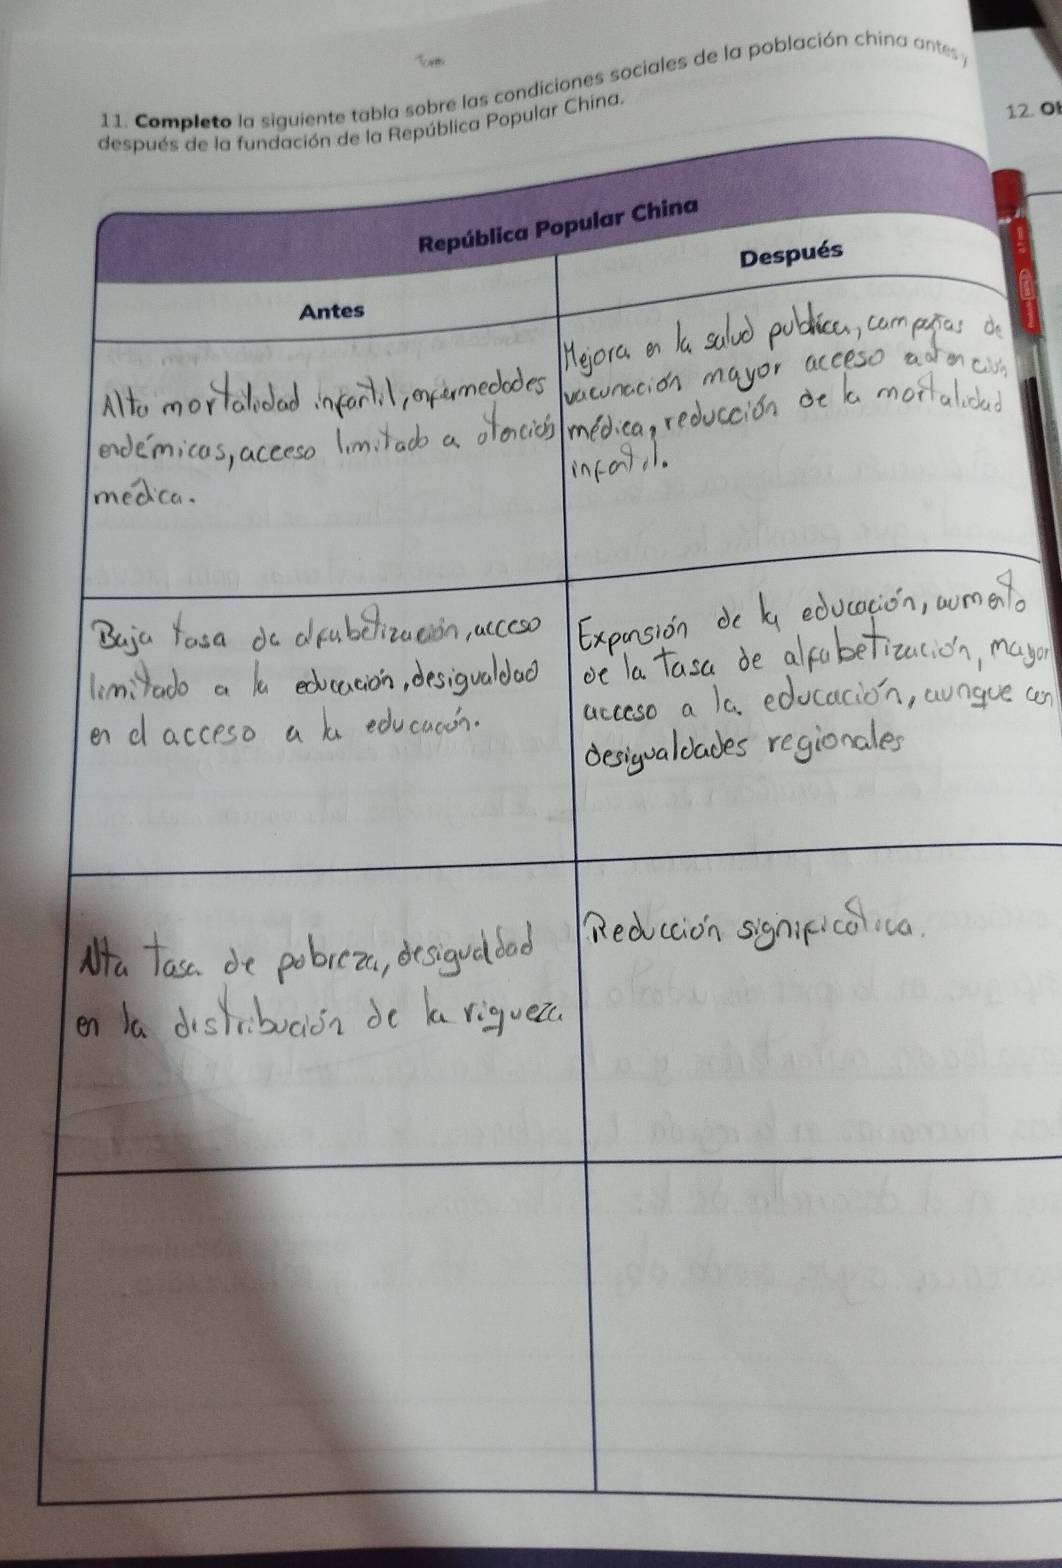 11. Completo la siguiente tabla sobre las condiciones sociales de la población china antes y
después de la fundación de la República Popular China.
12. Ob
República Popular China
Antes
Después
Alto mortalidad infantil, enfermedades
endémicas, acceeso limitado a atención
médica.
Mejora en la salud publica, campañas de
vacunación mayor acceeso a atención
médica, reducción de la mortalidad
infatil.
Baja tasa de alfabetización, acceso
limitado a la educación, desigualdad
en el acceso a la educación.
Expansión de la educación, aumento
de la tasa de alfabetización, mayor
acceso a la educación, aunque con
desigualdades regionales
Alta tasa de pobreza, desigualdad
en la distribución de la riqueza
Reducción significatica.